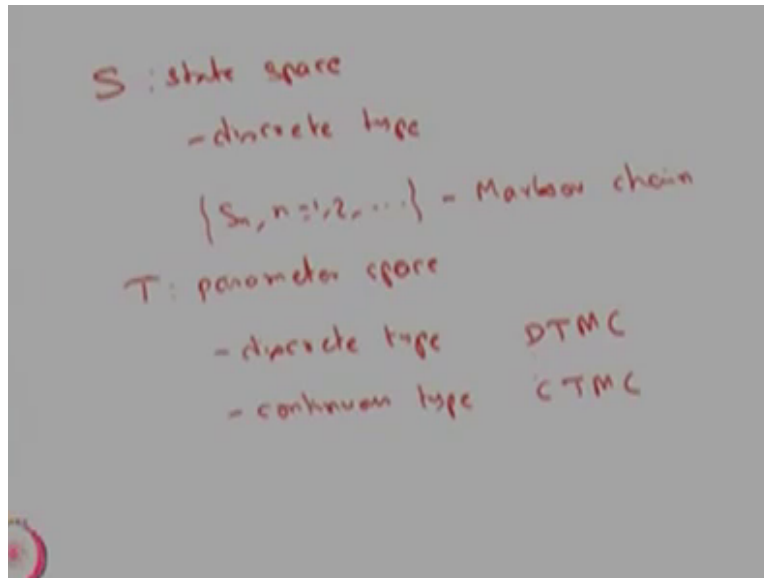 S : state space
- discrete type
{Sn, n=1,2, ...} - Markov chain
T : parameter space
- discrete type DTMC
- continuous type CTMC